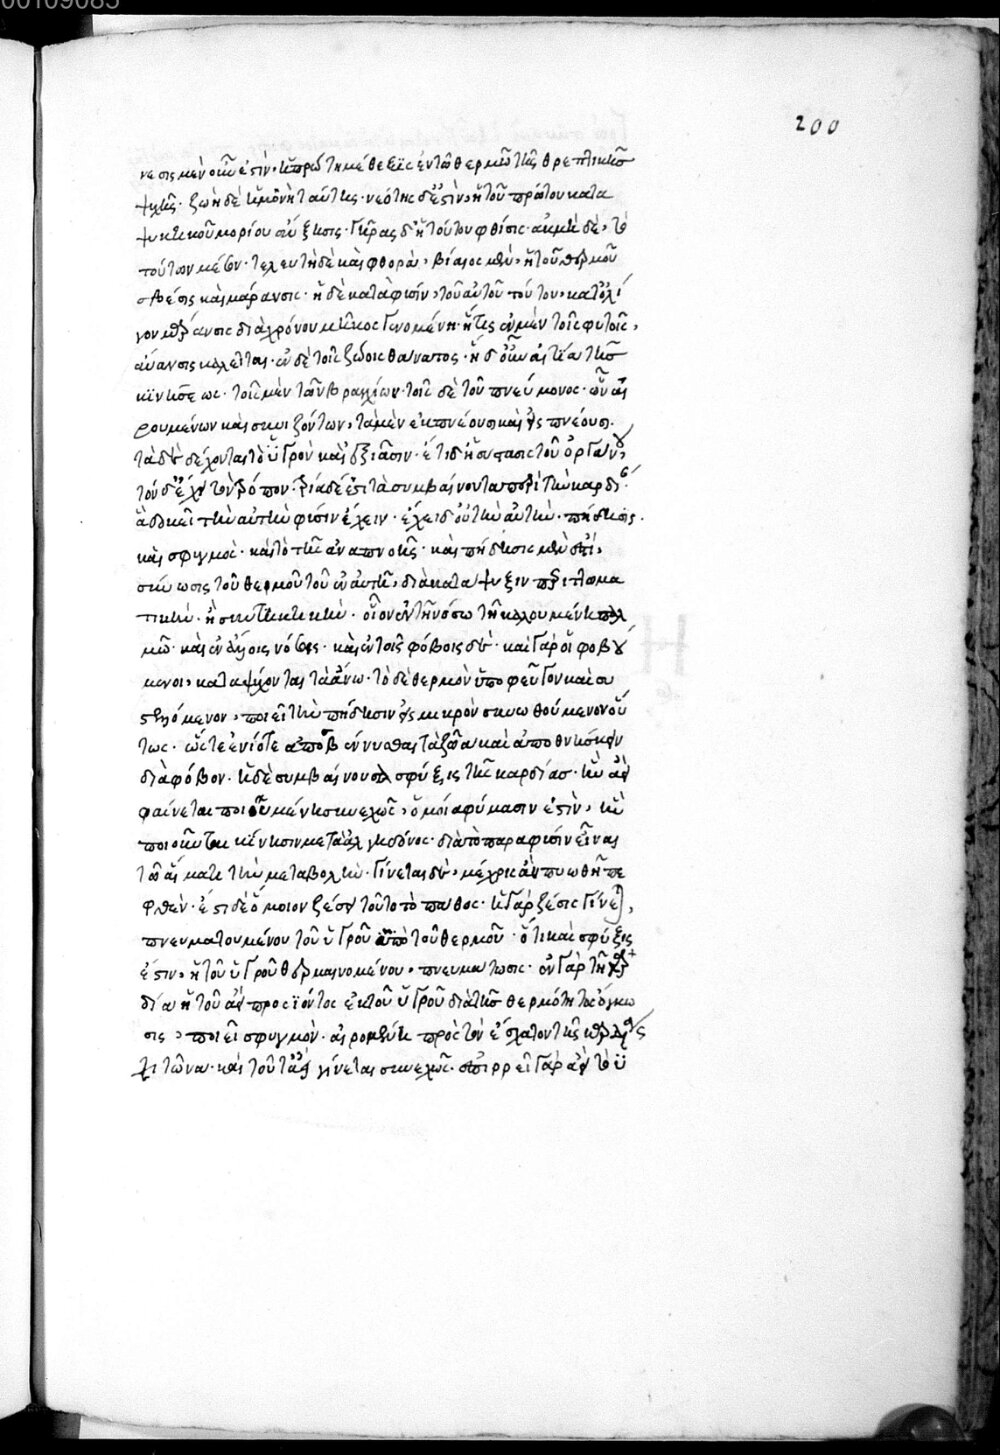 00109085
200
νεσις μὲν οὖν ἐστὶν, ἡ πρώτη μέθεξις ἐν τῷ θερμῷ τῆς θρεπτικῆς
ψυχῆς· ζωὴ δὲ ἡ μονὴ ταύτης· νεότης δ' ἐστὶν, ἡ τοῦ πρώτου κατα
ψυκτικοῦ μορίου αὔξησις· γῆρας δ' ἡ τούτου φθίσις· ἀκμὴ δὲ, τὸ
τούτων μέσον· τελευτὴ δὲ καὶ φθορὰ, βίαιος μὲν, ἡ τοῦ θερμοῦ
σβέσις καὶ μάρανσις· ἡ δὲ κατὰ φύσιν, τοῦ αὐτοῦ τούτου, κατ' ὀλί
γον μάρανσις διὰ χρόνου μῆκος γινομένη· ἥτις ἐν μὲν τοῖς φυτοῖς,
αὔανσις καλεῖται· ἐν δὲ τοῖς ζώοις θάνατος· ἡ δ' οὖν αἰτία τῆς
κϊνήσεως· τοῖς μὲν τῶν βραγχίων· τοῖς δὲ τοῦ πνεύμονος· ὧν αἰ
ρουμένων καὶ συνιζόντων, τὰ μὲν ἐκπνέουσι καὶ εἰσπνέουσι·
τὰ δὲ δέχονται τὸ ὑγρὸν καὶ ἐξιᾶσιν· ἔτι δ' ἡ σύστασις τοῦ ὀργάνου,
τοῦδ' ἔχει τὸν τρόπον· τρία δέ ἐστι τὰ συμβαίνοντα περὶ τὴν καρδί
ἃ δοκεῖ τὴν αὐτὴν φύσιν ἔχειν· ἔχει δ' οὐ τὴν αὐτὴν· πήδησις·
καὶ σφυγμὸς· καὶ τὸ τῆς ἀναπνοῆς· καὶ πήδησις μὲν ἐστὶ,
σύνωσις τοῦ θερμοῦ τοῦ ἐν αὐτῆ, διὰ κατάψυξιν περιττωμα
τικὴν· ἢ συντηκτικὴν· οἷον ἐν τῆ νόσω τῆ καλουμένη παλ
μῶ· καὶ ἐν ἄλλοις νόσοις· καὶ ἐν τοῖς φόβοις δὲ· καὶ γὰρ οἱ φοβού
μενοι, καταψύχονται τὰ ἄνω· τὸ δὲ θερμὸν ὑποφεῦγον καὶ συ
στελλόμενον, ποιεῖ τὴν πήδησιν εἰς μικρὸν συνωθούμενον οὕ
τως· ὥστε ἐνίοτε ἀποσβέννυσθαι τὰ ζῶα καὶ ἀποθνήσκειν
διὰ φόβον· ἡ δὲ συμβαίνουσα σφύξις τῆς καρδίας· ἣν ἀεὶ
φαίνεται ποιουμένη συνεχῶς, ὁμοία φύμασίν ἐστὶν, ἣν
ποιοῦνται κϊνησιν μετὰ ἀλγηδόνος· διὰ τὸ παρὰ φύσιν εἶναι
τῶ αἵματι τὴν μεταβολὴν· γίνεται δὲ, μέχρις ἂν πυωθῆ πε
φθὲν· ἔστι δὲ ὅμοιον ζέσει τοῦτο τὸ πάθος· ἡ γὰρ ζέσις γίνεται,
πνευματουμένου τοῦ ὑγροῦ ὑπὸ τοῦ θερμοῦ· ὅτι καὶ σφύξις
ἐστὶν, ἡ τοῦ ὑγροῦ θερμαινομένου, πνευμάτωσις· ἐν γὰρ τῆ καρ
δία ἡ τοῦ ἀεὶ προσϊόντος ἐκ τοῦ ὑγροῦ διὰ τῆς θερμότητος ὄγκω
σις, ποιεῖ σφυγμὸν· αἰρομένη πρὸς τὸν ἔσχατον τῆς καρδίας
χιτῶνα· καὶ τοῦτ' ἀεὶ γίνεται συνεχῶς· ἐπιρρεῖ γὰρ ἀεὶ τὸ ὑ